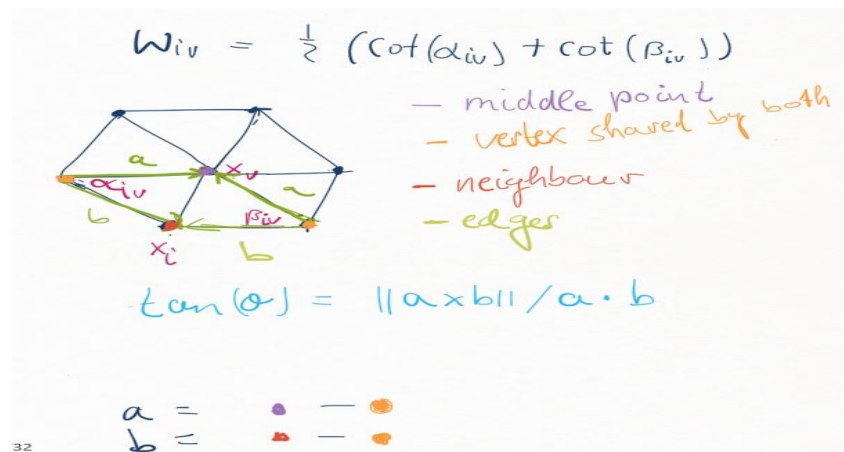 Wiv = 1/2 (cot(αiv) + cot(βiv))
— middle point
— vertex shared by both
— neighbour
— edges
a
xv
αiv
a
b
βiv
xi
b
tan(θ) = ||a×b|| / a · b
a = • — •
b = • — •
32